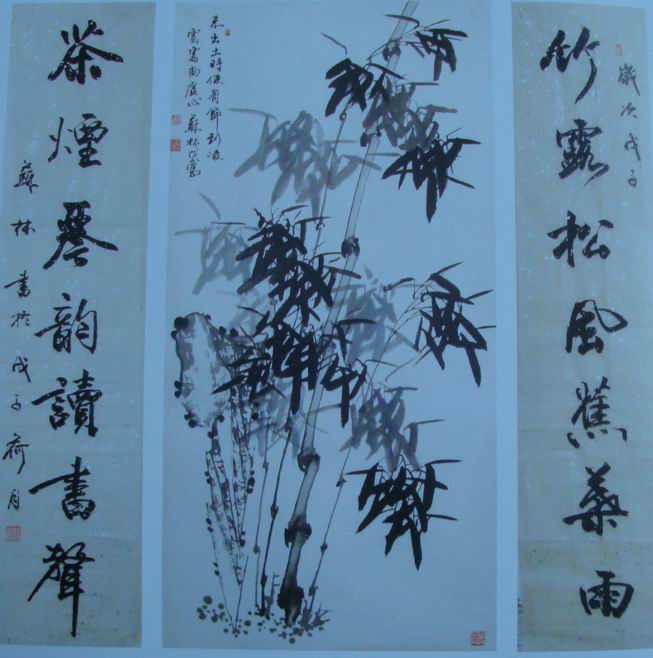 歲次戊子
竹露松風蕉葉雨
未出土時便有節到凌
雲尚虛心 蘇林寫
茶煙琴韻讀書聲
蘇林書於戊子月